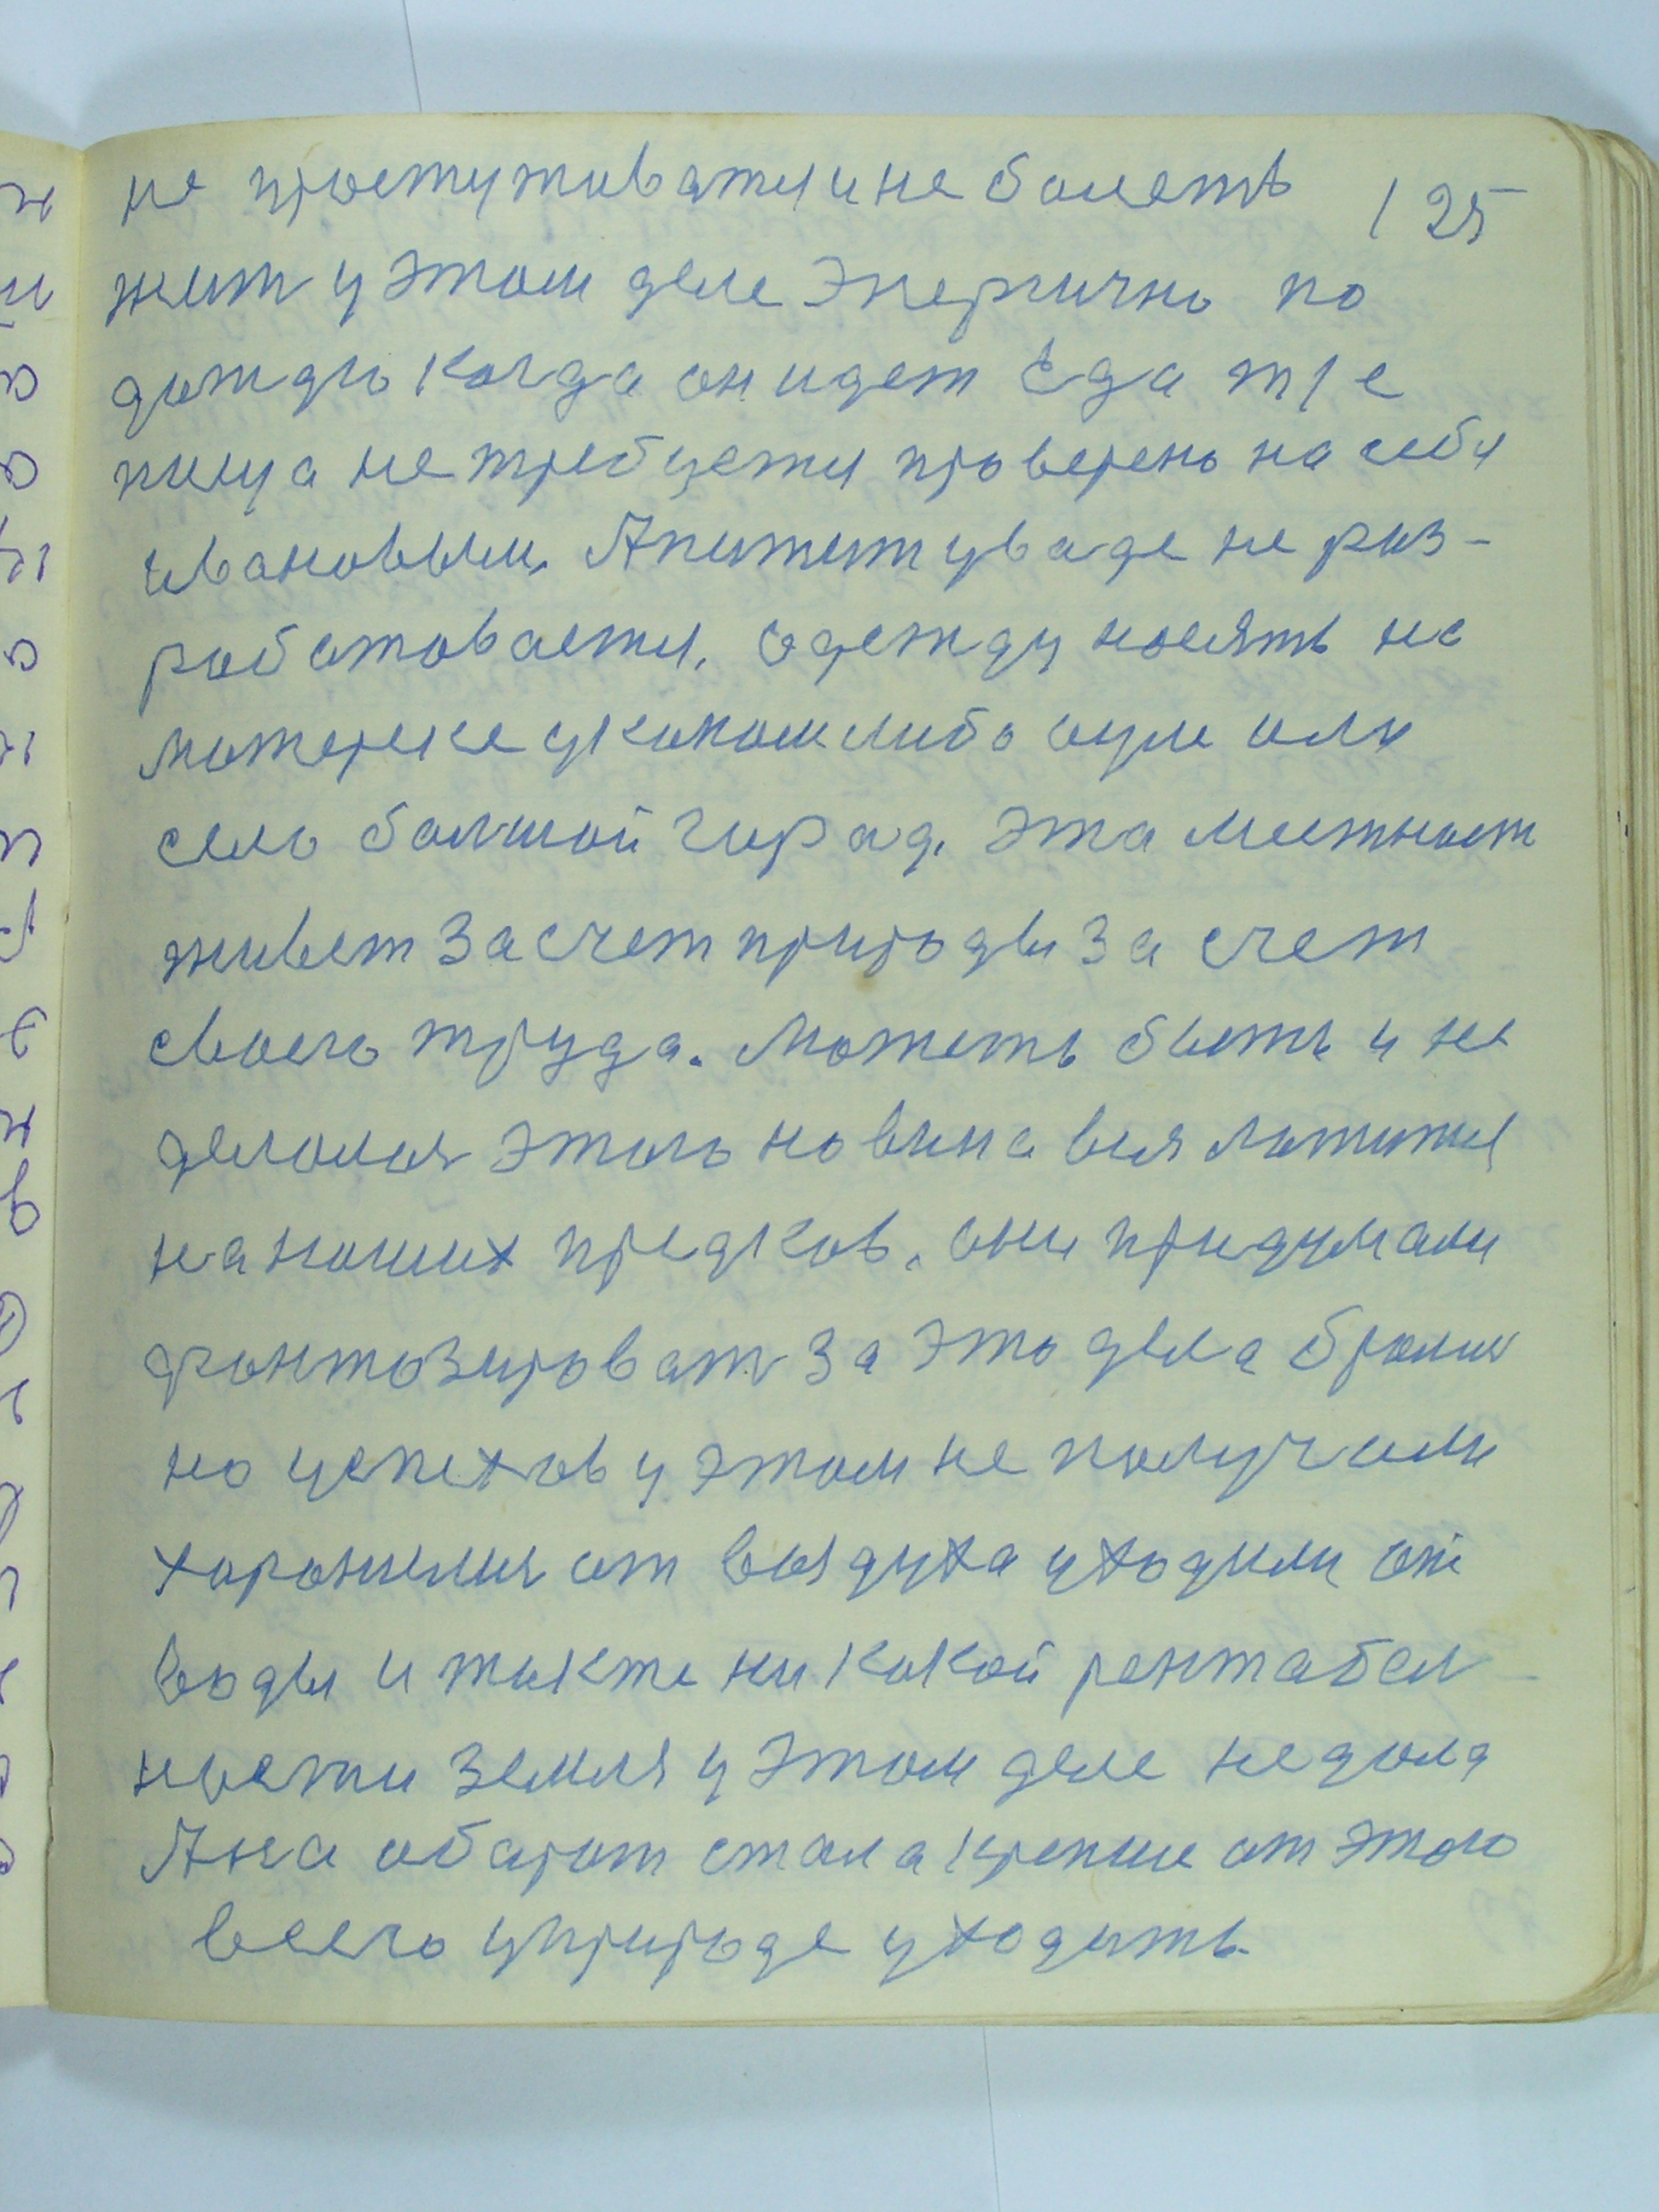 не простуживатся и не болеть 125
жит у этом деле энергично по
дождю когда он идет Еда т/е
пища не требуется проверено на себя
ивановым. Апитит у ваде не раз-
работовается. Одежду носять на
материке у каком либо ауле или
село большой горад. Эта местност
живет за счет природы за счет
своего труда. Можеть быть и не
делолося этого но вина вся ложится
на наших предков. они придумали
фонтозироват за это дела брались
но успехов у этом не получали
хоронились от воздуха уходили от
воды и также ни какой рентабел
ности земля у этом деле не дала
Ана обарот стала крепше от этого
всего у природе уходить.